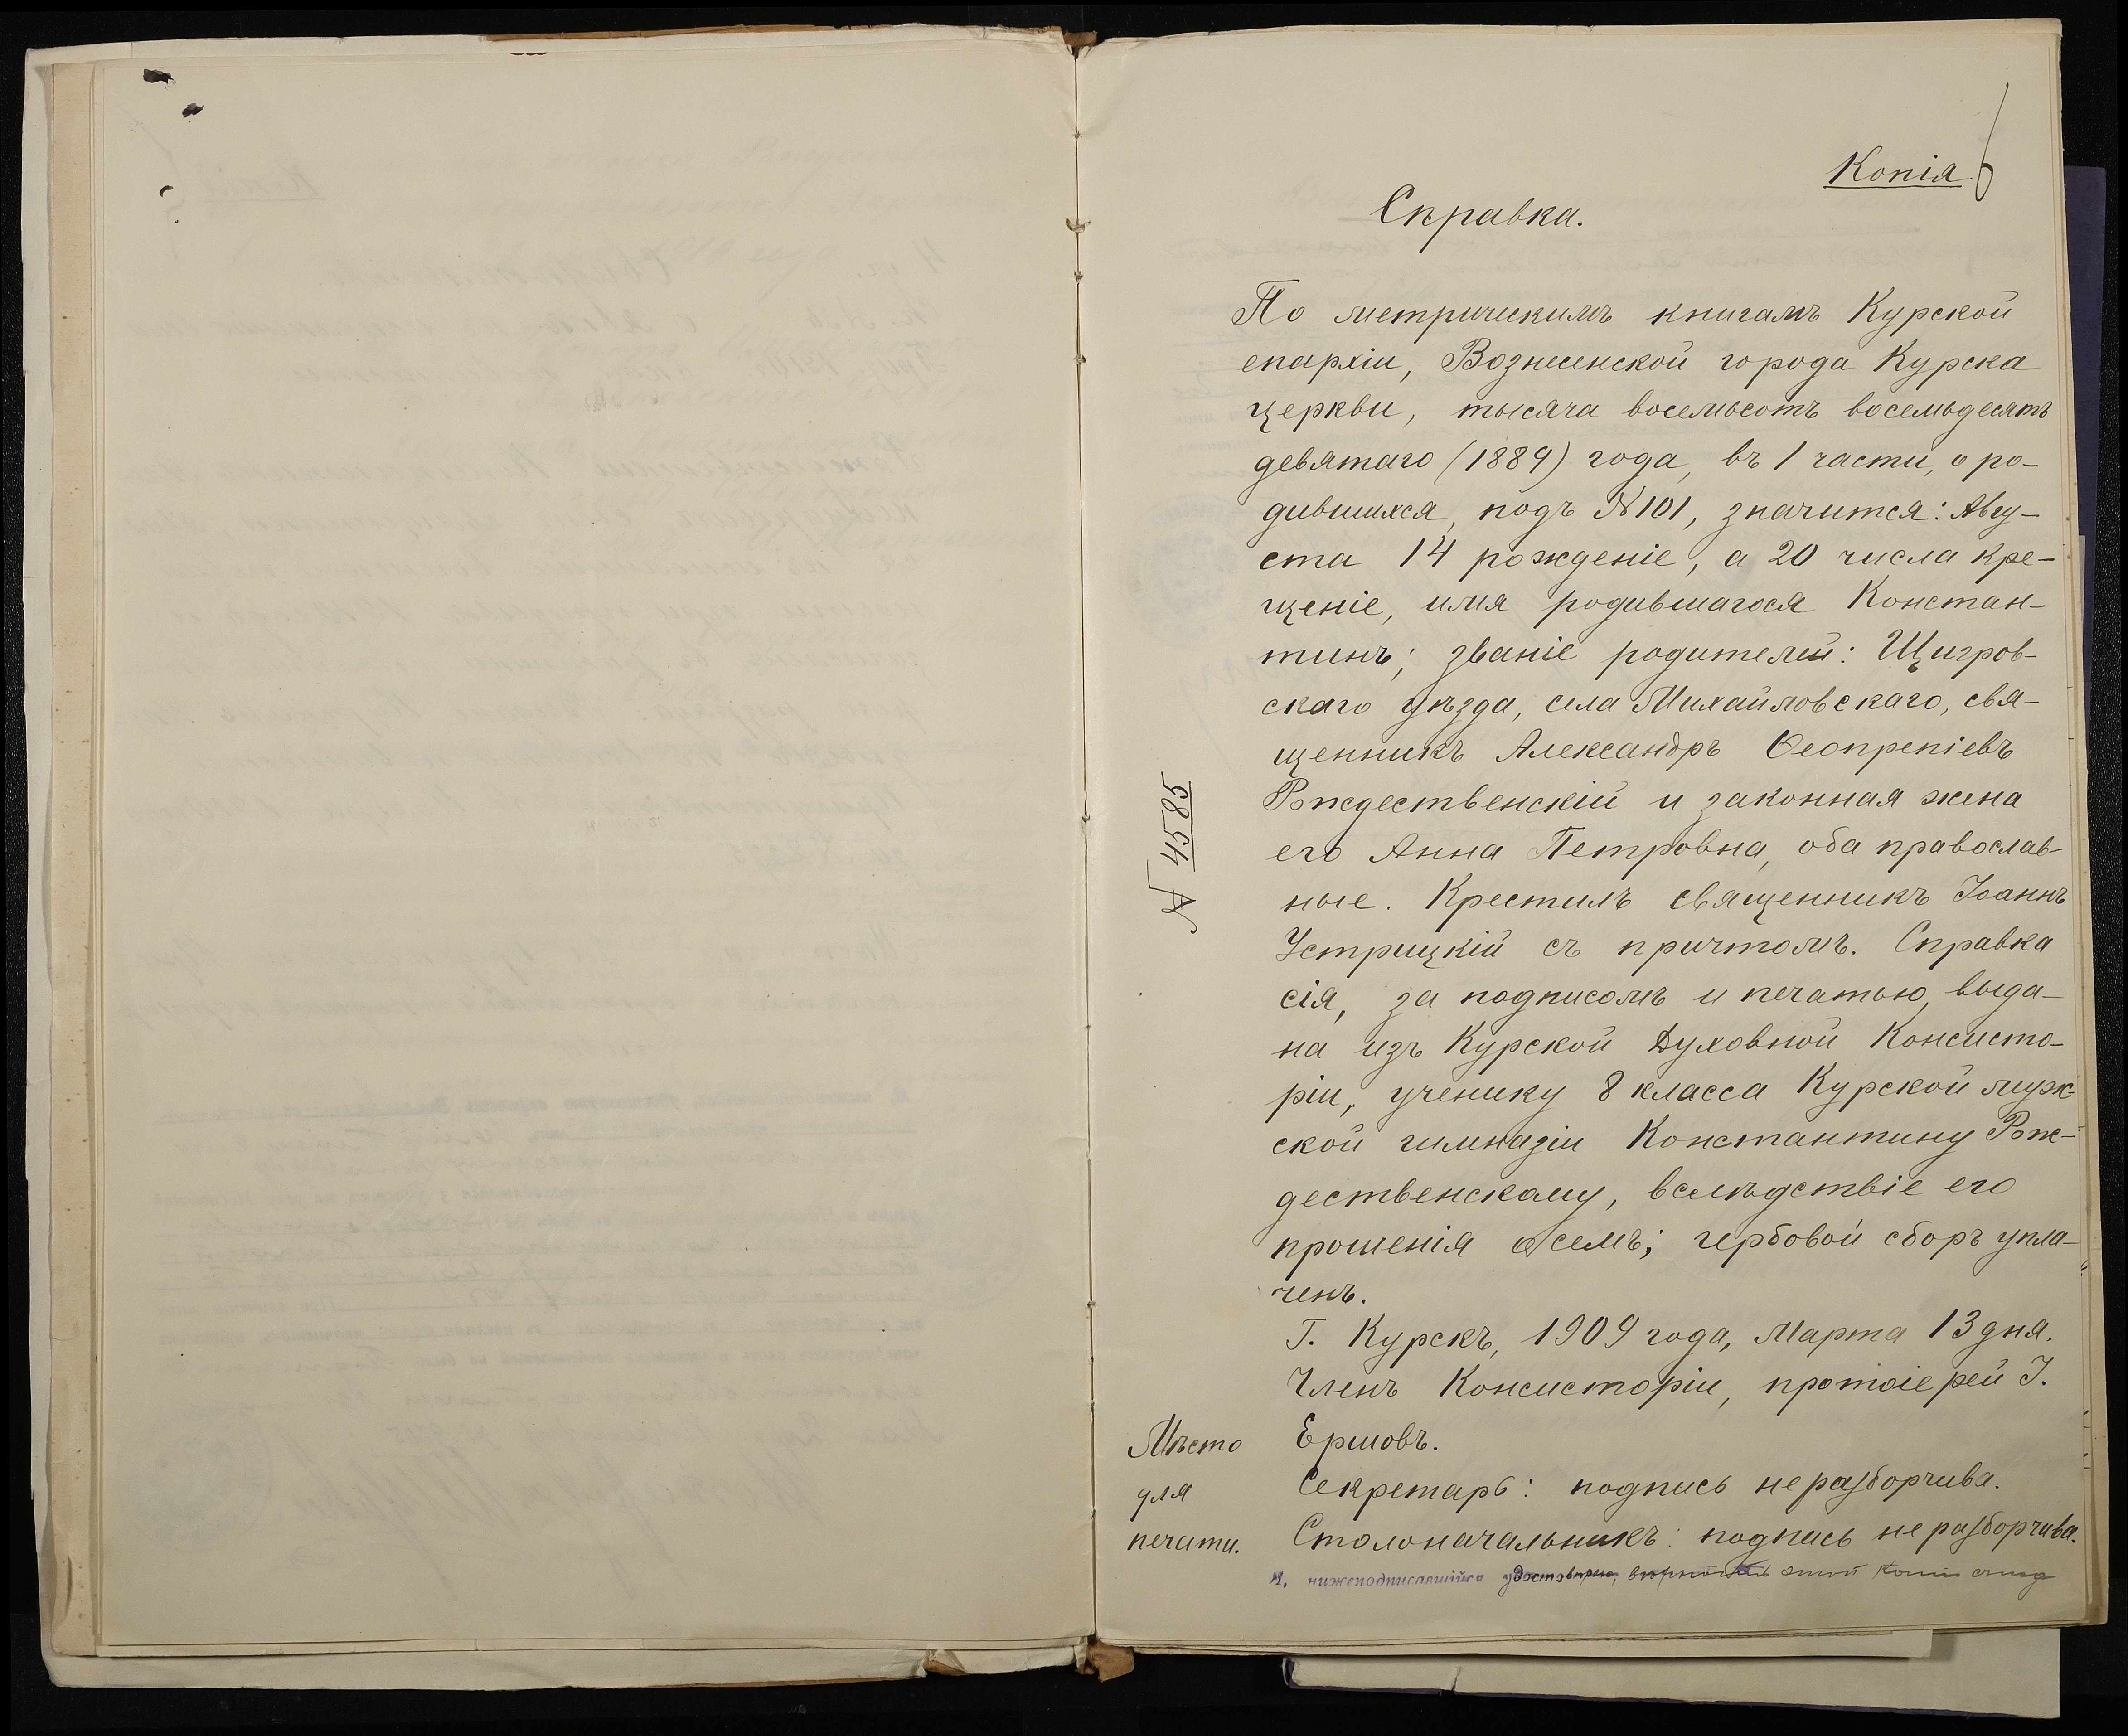 Копія.
6
Справка.
По метрическимъ книгамъ Курской
епархіи, Вознесенской города Курска
церкви, тысяча восемьсотъ восемьдесятъ
девятаго (1889) года, въ 1 части, о ро-
дившихся, подъ №101, значится: Авгу-
ста 14 рожденіе, а 20 числа кре-
щеніе, имя родившагося Констан-
тинъ; званіе родителей: Щигров-
скаго уѣзда, села Михайловскаго, свя-
щенникъ Александръ Ѳеопрепіевъ
Рождественскій и законная жена
его Анна Петровна, оба православ-
ные. Крестилъ священникъ Іоаннъ
Устрицкій съ причтомъ. Справка
сія, за подписомъ и печатью, выда-
на изъ Курской Духовной Консисто-
ріи, ученику 8 класса Курской муж-
ской гимназіи Константину Рож-
дественскому, вслѣдствіе его
прошенія о семъ; гербовой сборъ упла-
ченъ.
Г. Курскъ, 1909 года, Марта 13 дня.
Членъ Консисторіи, протоіерей І.
Ершовъ.
Секретарь: подпись неразборчива.
Столоначальникъ: подпись неразборчива.
Я, нижеподписавшійся удостовѣряю, вѣрность этой копіи
№ 4585
Мѣсто
для
печати.